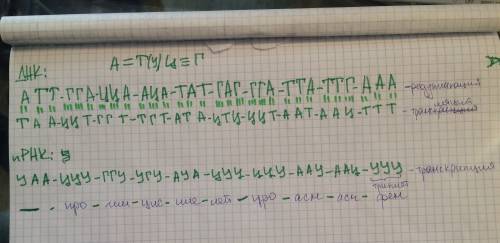 ДНК: А=Т(У) Ц≡Г
АТТ-ГГА-ЦЦА-АЦА-ТАТ-ГАГ-ГГА-ТТА-ТТГ-ААА
ТАА-ЦЦТ-ГГТ-ТГТ-АТА-ЦТЦ-ЦЦТ-ААТ-ААЦ-ТТТ
иРНК:
УАА-ЦЦУ-ГГУ-УГУ-АУА-ЦУЦ-ЦЦУ-ААУ-ААЦ-УУУ - транскрипция
триплет
про - гли - цис - иле - лей - про - асн - асн - фен